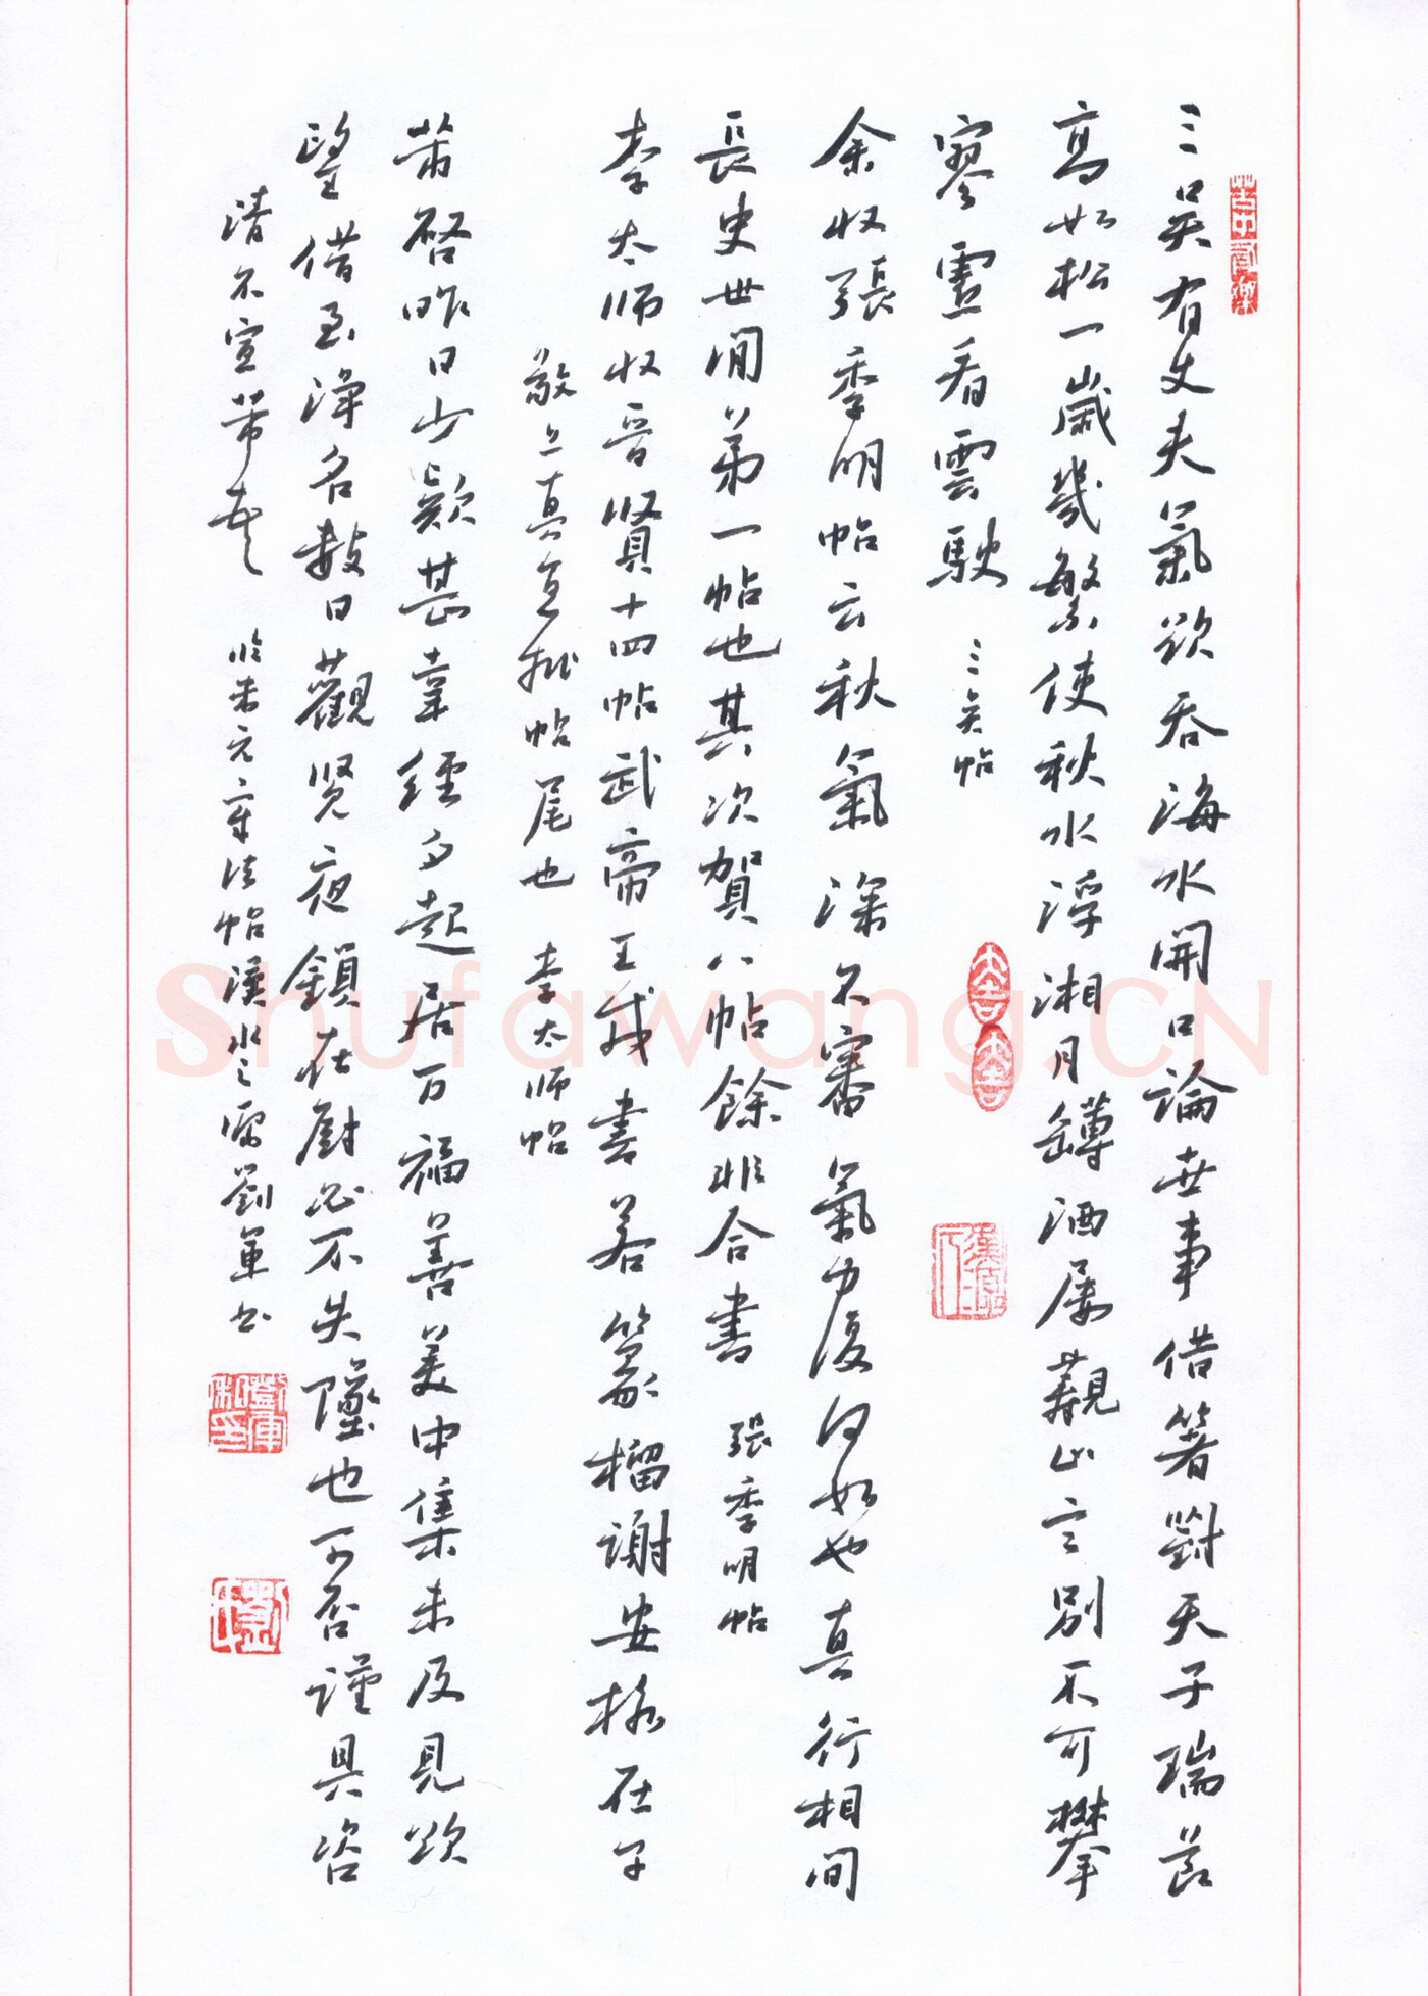 三吳有丈夫氣欲吞海水開口論世事借箸對天子瑞節
高如松一歲幾繁使秋水浮湘月罇酒屢觀止言別不可攀
寥寥看雲駛 三吳帖
余收張季明帖云秋氣深不審氣力復何如也真行相間
長史世間第一帖也其次賀八帖餘非合書 張季明帖
李太師收晉賢十四帖武帝王戎書若篆榴謝安格在子
敬上真宜批帖尾也 李太師帖
芾啓昨日少款甚幸經夕起居万福善美中集未及見欲
望借至淨名數日觀覽夜鎖在廚必不失墜也可否謹具咨
清不宣芾頓首
臨米元章法帖漢水之濱劉軍書
Shufawang.CN